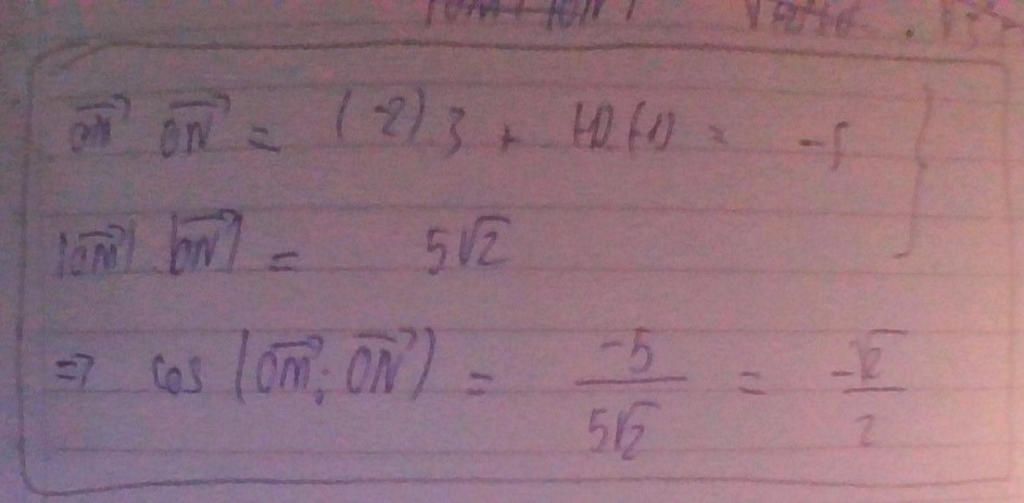 OM⃗ ON⃗ = (-2) 3 + (-1)(-1) = -5
|OM⃗| |ON⃗| = 5√2
=> cos (OM⃗; ON⃗) = -5/5√2 = -√2/2